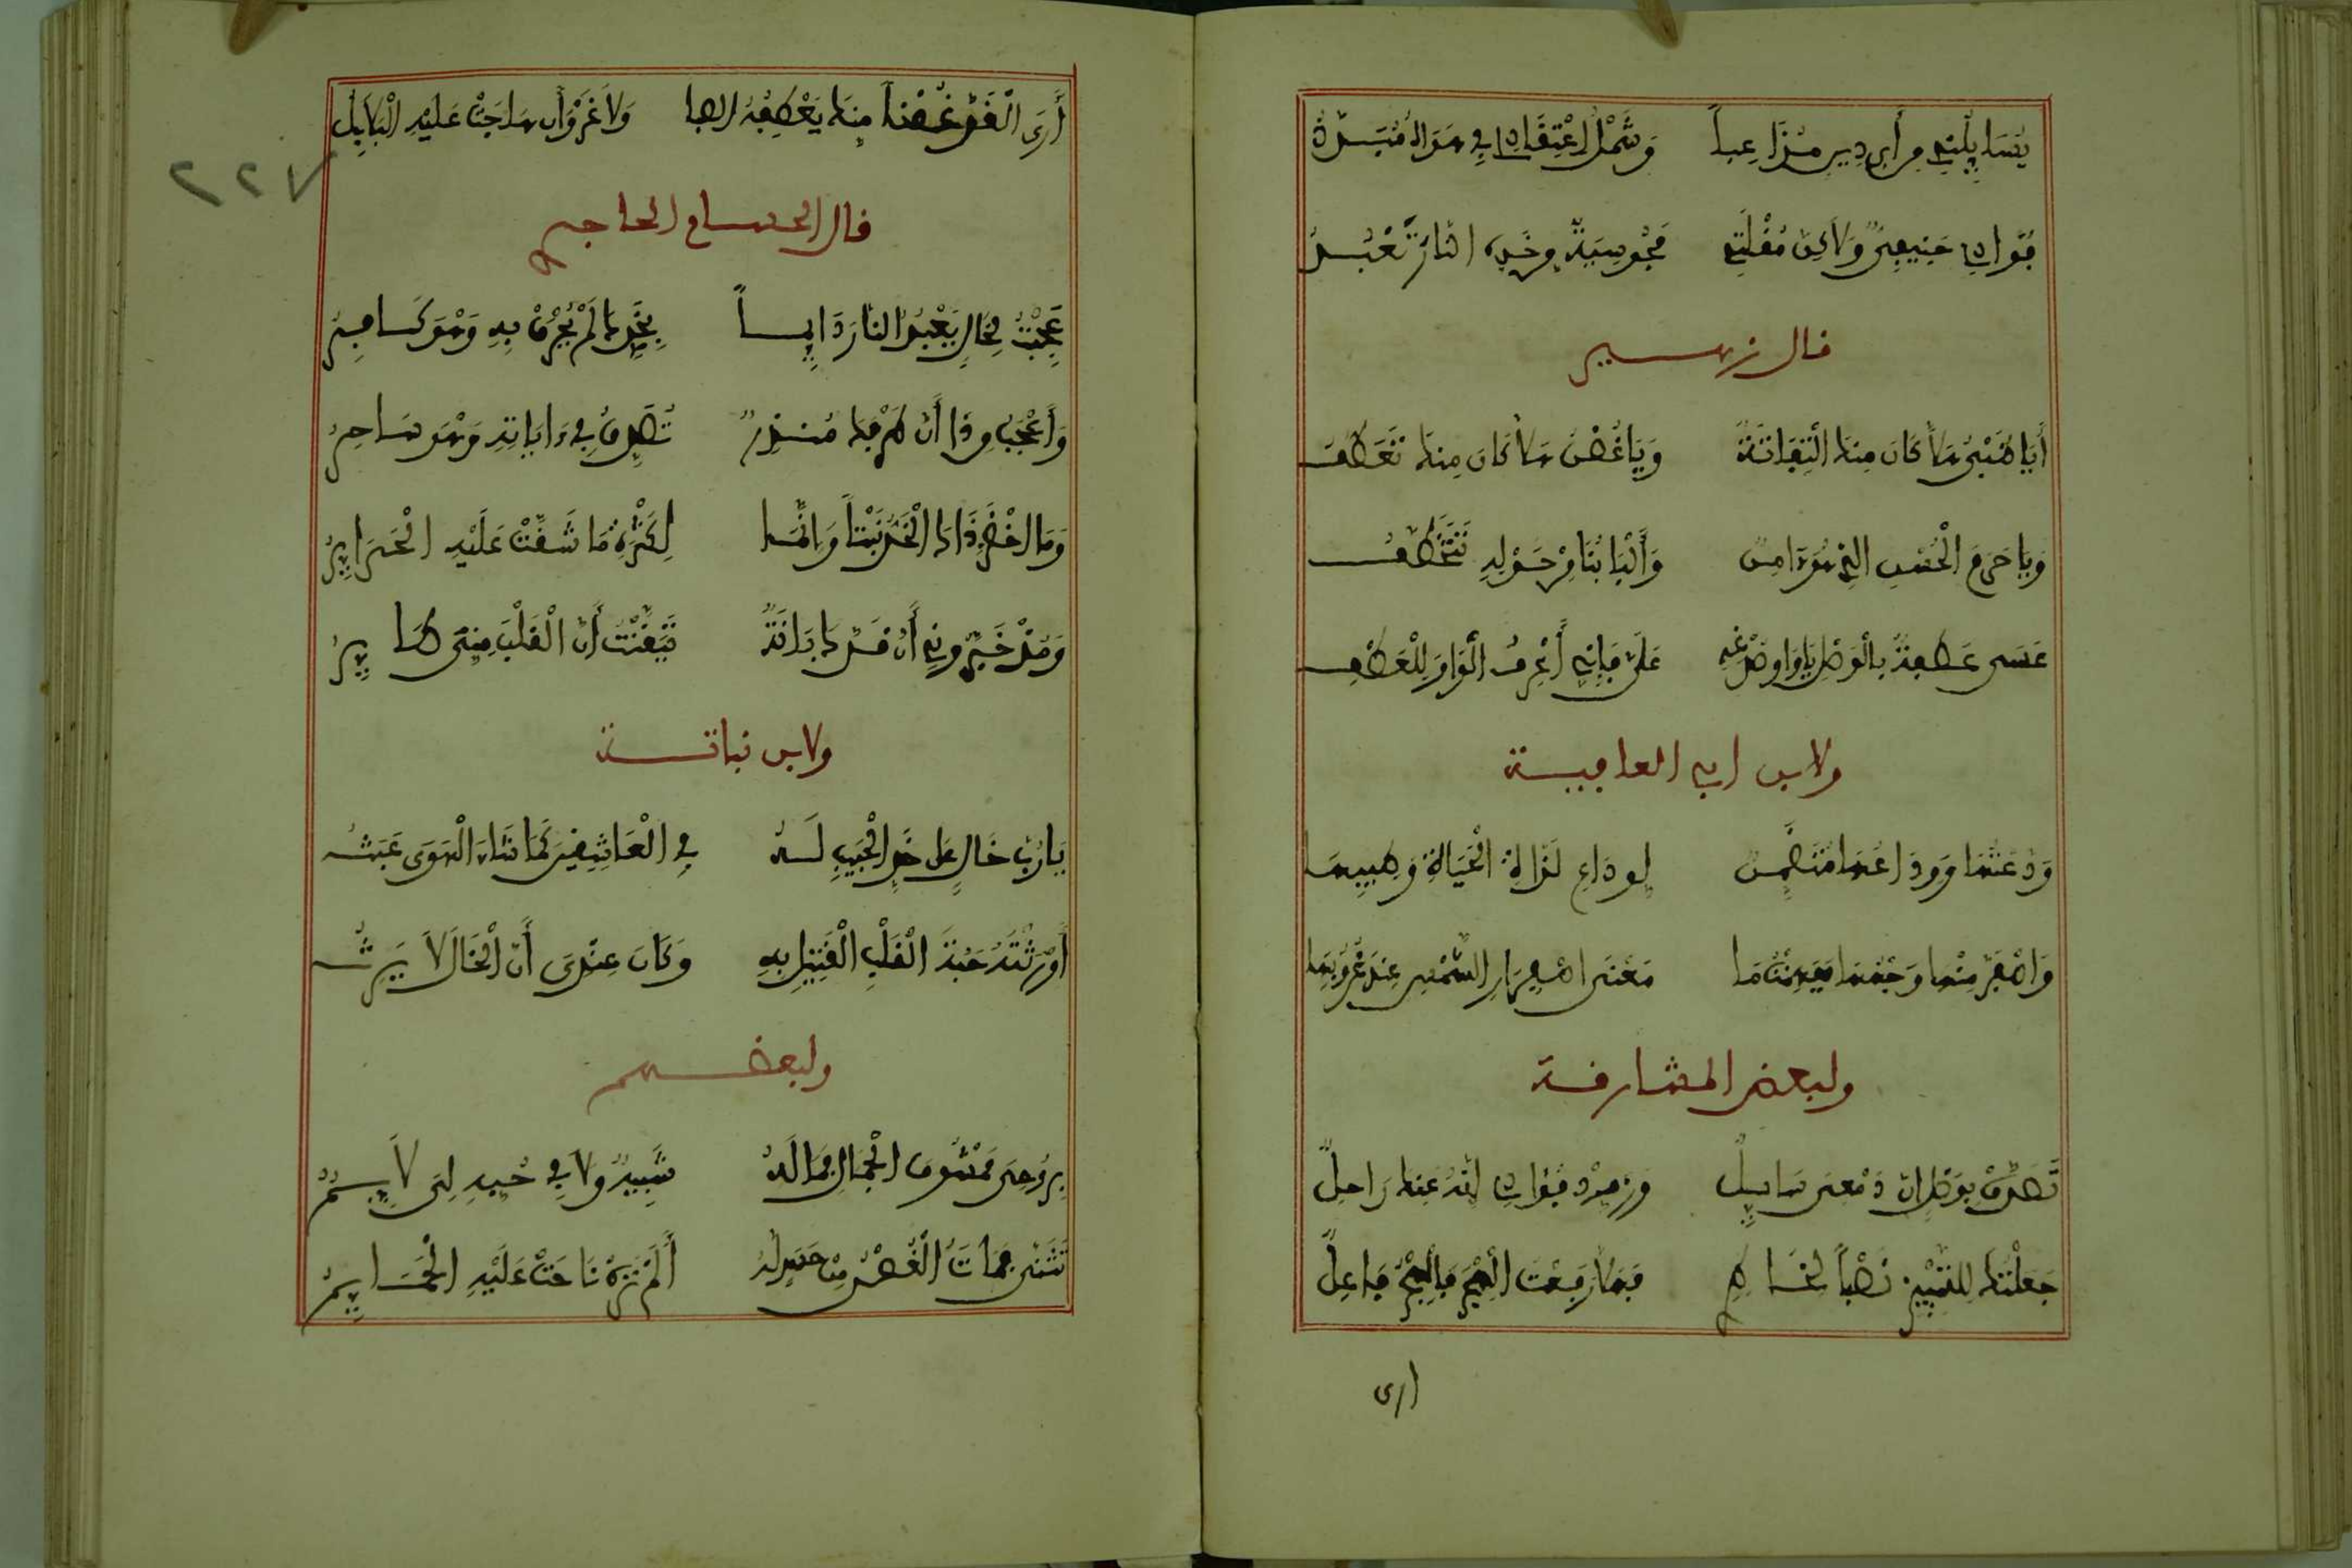 يُسَايِلُنِي مِن أَيِّ دِينٍ مُزَاعِباً وَشَمْلُ اعْتِقَادِي فِي هَوَاهُ مُبَدَّدُ
فُؤَادِي حَنِيفِيٌّ وَلَاكِنَّ مُقْلَتِي مَجُوسِيَةٌ مِن خَدِّهِ النَّارَ تَعْبُدُ
قال زهير
أَيَا ظَبْيُ هَلَّا كَانَ مِنكَ الْتِفَاتَةٌ وَيَا غُصْنُ هَلَّا كَانَ مِنكَ تَعَطُّفُ
وَيَا حَرَمَ الْحُسْنِ الذِي هُوَ ءَامِنٌ وَأَلْبَابُنَا مِنْ حَوْلِهِ تَتَخَطَّفُ
عَسَى عَطْفَةٌ بِالْوَصْلِ يَا وَاوَ صُدْغِهِ عَلَيَّ فَإِنِّي أَعْرِفُ الْوَاوَ لِلْعَطْفِ
ولابن ابي العافيـة
وَدَّعْتُهَا وَوَدَاعُهَا مُتَضَمِّنٌ لِوَدَاعِ لَذَّاةِ الْحَيَاةِ وَطِيبِهَا
وَاصْفَرَّ مِنْهَا وَجْهُهَا فَفَهِمْتُ مَا مَعْنَى اصْفِرَارِ الشَّمْسِ عِنْدَ غُرُوبِهَا
ولبعض المشارقة
تَصَدَّقْ بِوَصْلٍ إنَّ دَمْعِيَ سَايِلٌ وَزَوِّدْ فُؤَادِي إنَّهُ عِنكَ رَاحِلٌ
جَعَلْتُكَ لِلتَّمْيِيزِ نَصْباً لِخَاطِرِي فَهَلَّا رَفَعْتَ الْهَجْرَ فَالْهَجْرُ فَاعِلٌ
ارى
٢٢٧
أَرَى الْقَدَّ غُصْناً مِنكَ يَعْطِفُهُ الصبا وَلَا غَرْوَ أَن هَاجَتْ عَلَيْهِ الْبَلَابِلُ
قال الحسام الحاجري
عَجِبْتُ لِخَالٍ يَعْبُدُ النَّارَ دَايِماً بِخَدِّكَ لَمْ يُحْرَقْ بِهِ وَهْوَ كَافِرُ
وَأَعْجَبُ مِن ذَا أَنَّ طَرْفَكَ مُنذِرٌ يُصَدَّقُ فِي ءَايَاتِهِ وَهْوَ سَاحِرُ
وَمَا اخْضَرَّ ذَاكَ الْخَدُّ نَبْتاً وَإِنَّمَا لِكَثْرَةِ مَا شُقَّتْ عَلَيْهِ الْمَرَايِرُ
وَمُذْ خَبَّرُونِي أَنَّ قَدَّكَ بَانَةٌ تَيَقَّنْتُ أَنَّ الْقَلْبَ مِنِّي طَايِرُ
ولابن نباتـة
يَا رُبَّ خَالٍ عَلَى خَدِّ الْحَبِيبِ لَهُ فِي الْعَاشِقِينَ كَمَا شَاءَ الْهَوَى عَبَثُ
أَوْرَثْتُهُ حَبَّةَ الْقَلْبِ الْقَتِيلِ بِهِ وَكَانَ عِنْدِيَ أَنَّ الْخَالَ لَا يَرِثُ
ولبعضهم
بِرُوحِيَ مَمْشُوقَ الْجَمَالِ فَمَا لَهُ شَبِيهٌ وَلَا فِي حُبِّهِ لِيَ لَايِمُ
تَثَنَّى فَمَاتَ الْغُصْنُ مِنْ حَسَدٍ لَهُ أَلَمْ تَرَهُ نَاحَتْ عَلَيْهِ الْحَمَايِمُ